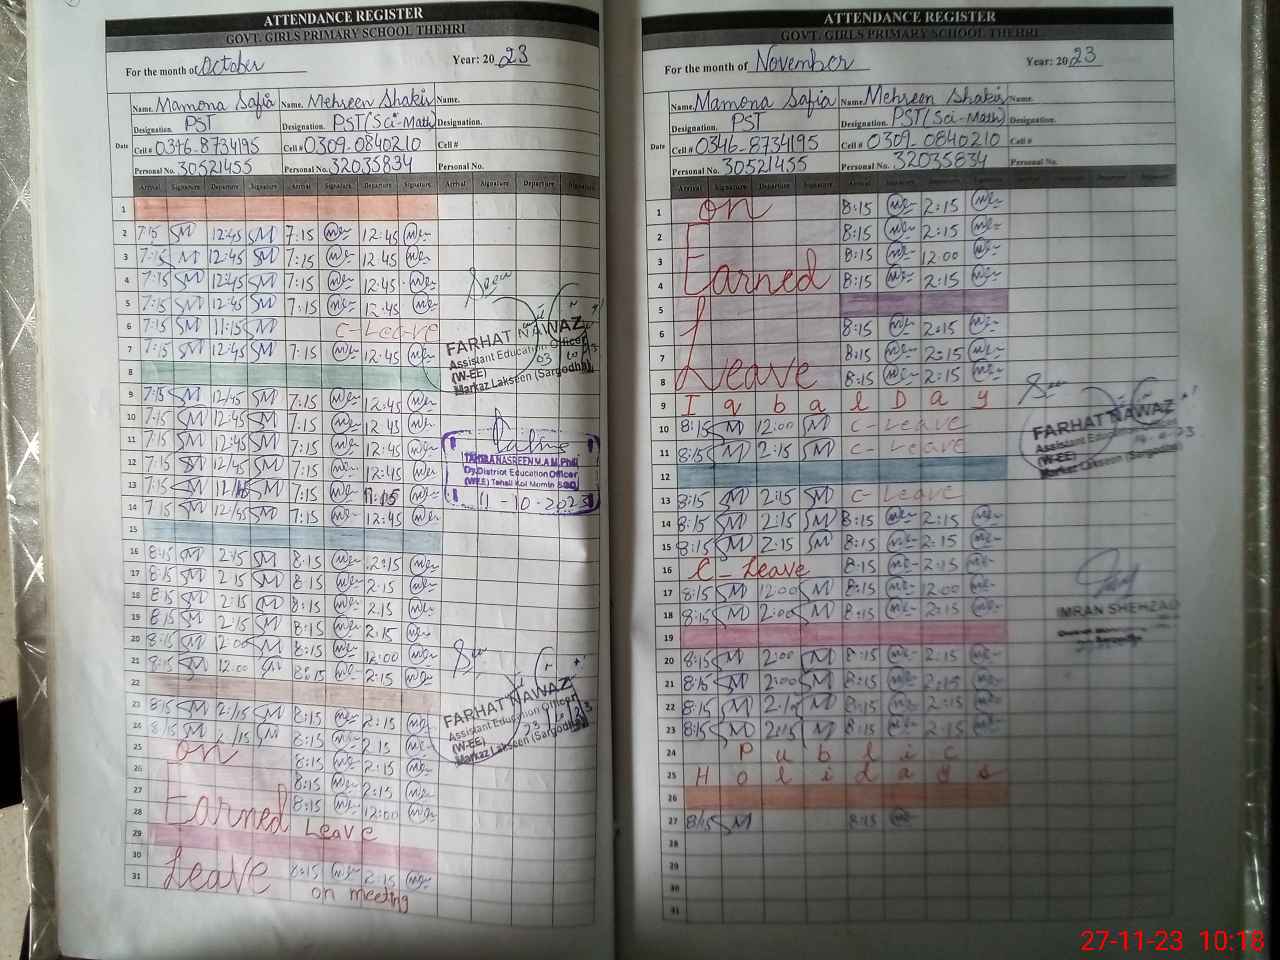 ATTENDANCE REGISTER
GOVT. GIRLS PRIMARY SCHOOL THEHRI
For the month of October Year: 20 23
Name. Mamona Safia Name. Mehreen Shakir Name.
Designation. PST Designation. PST(Sci-Math) Designation.
Date Cell # 0346-8734195 Cell # 0309-0840210 Cell #
Personal No. 30521455 Personal No. 32035834 Personal No.
Arrival Signature Departure Signature Arrival Signature Departure Signature Arrival Signature Departure Signature
1
2 7:15 M 12:45 M 7:15 12:45
3 7:15 M 12:45 M 7:15 12:45
4 7:15 M 12:45 M 7:15 12:45
5 7:15 M 12:45 M 7:15 12:45
6 7:15 M 11:15 M C-Leave
7 7:15 M 12:45 M 7:15 12:45
8
9 7:15 M 12:45 M 7:15 12:45
10 7:15 M 12:45 M 7:15 12:45
11 7:15 M 12:45 M 7:15 12:45
12 7:15 M 12:45 M 7:15 12:45
13 7:15 M M 7:15
14 7:15 M 12:45 M 7:15 12:45
15
16 8:15 M 2:15 M 8:15 2:15
17 8:15 M 2:15 M 8:15 2:15
18 8:15 M 2:15 M 8:15 2:15
19 8:15 M 2:15 M 8:15 2:15
20 8:15 M 12:00 M 8:15 12:00
21 8:15 M 12:00 M 8:15 2:15
22
23 8:15 M 2:15 M 8:15 2:15
24 8:15 M 2:15 M 8:15 2:15
25 on 8:15 2:15
26 8:15 2:15
27 Earned 8:15 12:00
28 Leave
29
30
31 Leave 8:15 2:15
on meeting
Seen
FARHAT NAWAZ
Assistant Education Officer
(W-EE)
Markaz Lakseen (Sargodha)
TAHIRA NASREEN M.A M.Phil
Dy. District Education Officer
(W-EE) Tehsil Kot Momin SGD
11-10-2023
FARHAT NAWAZ
Assistant Education Officer
(W-EE)
Markaz Lakseen (Sargodha)
ATTENDANCE REGISTER
GOVT. GIRLS PRIMARY SCHOOL THEHRI
For the month of November Year: 20 23
Name. Mamona Safia Name. Mehreen Shakir Name.
Designation. PST Designation. PST(Sci-Math) Designation.
Date Cell # 0346-8734195 Cell # 0309-0840210 Cell #
Personal No. 30521455 Personal No. 32035834 Personal No.
Arrival Signature Departure Signature Arrival
1 on 8:15 2:15
2 8:15 2:15
3 8:15 12:00
4 Earned 8:15 2:15
5
6 8:15 2:15
7 8:15 2:15
8 Leave 8:15 2:15
9 Iqbal Day
10 8:15 M 12:00 M C-Leave
11 8:15 M 2:15 M C-Leave
12
13 8:15 M 2:15 M C-Leave
14 8:15 M 2:15 M 8:15 2:15
15 8:15 M 2:15 M 8:15 2:15
16 C-Leave 8:15 2:15
17 8:15 M 12:00 M 8:15 12:00
18 8:15 M 2:00 M 8:15 2:15
19
20 8:15 M 2:00 M 8:15 2:15
21 8:15 M 2:00 M 8:15 2:15
22 8:15 M 2:15 M 8:15 2:15
23 8:15 M 2:15 M 8:15 2:15
24 Public
25 Holidays
26
27 8:15 M 8:15
28
29
30
31
FARHAT NAWAZ
Assistant Education Officer
(W-EE)
Markaz Lakseen (Sargodha)
IMRAN SHEHZAD
27-11-23 10:18